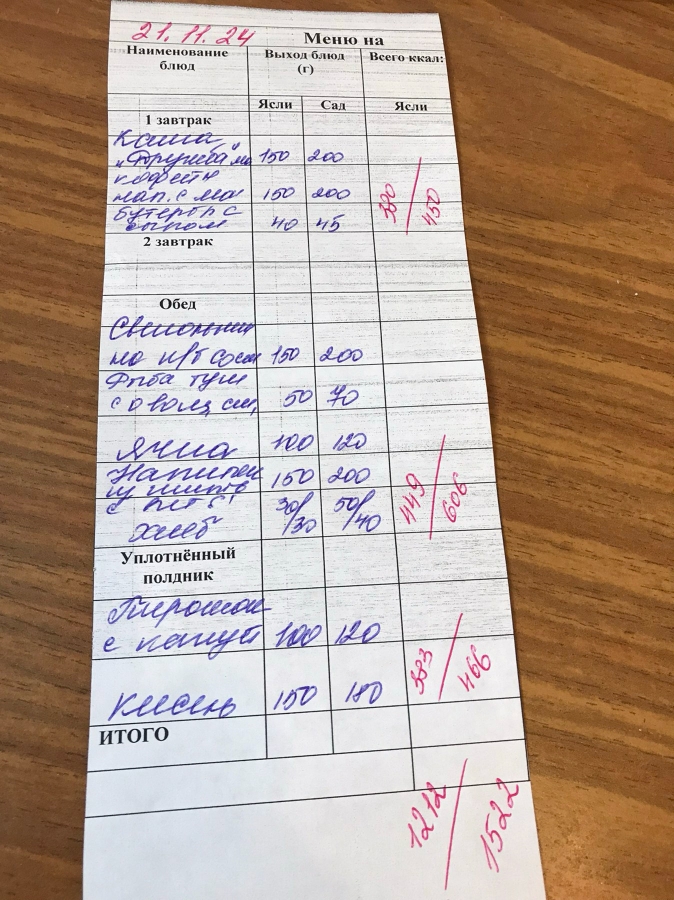 21.11.24 Меню на
Наименование Выход блюд Всего ккал:
блюд (г)
Ясли Сад Ясли
1 завтрак
Каша
„Дружба" мо 150 200
кофейн
нап. с мол 150 200 380/450
бутербр с
сыром 40 45
2 завтрак
Обед
Свекольник
на к/б 150 200
Рыба туш
с овощ 50 70
Ячка 100 120
Напиток 150 200 449/606
из шипов
с вит "С" 30/30 50/40
хлеб
Уплотнённый
полдник
Пирожок
с капуст 100 120
383/466
кисель 150 180
ИТОГО
1212/1522